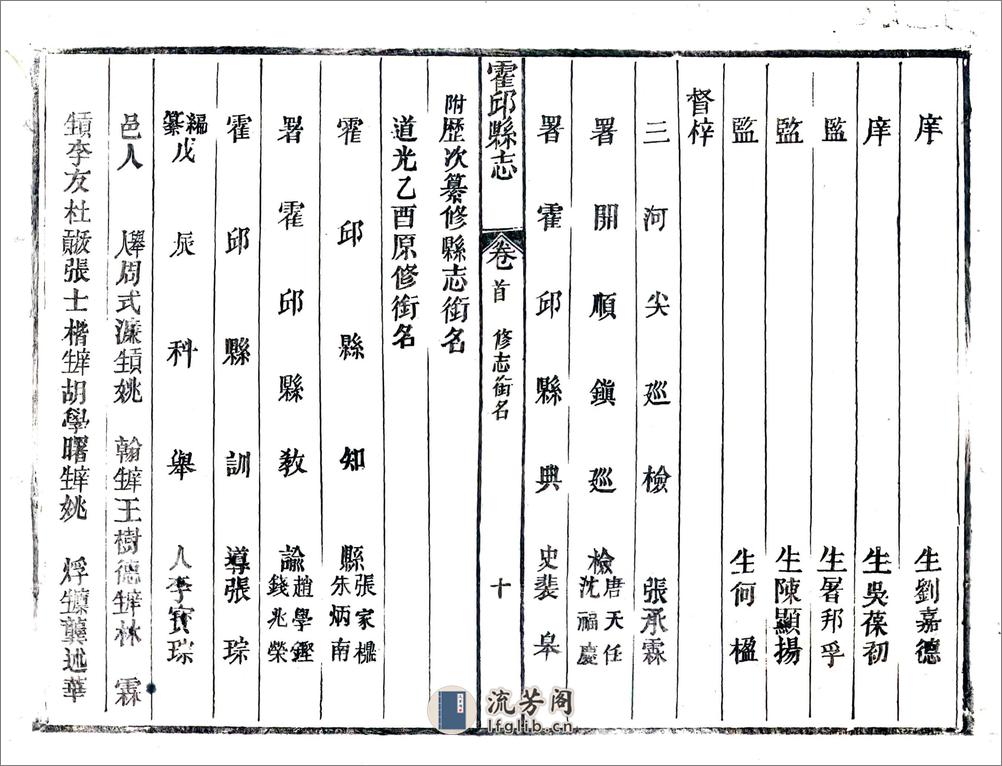 庠生劉嘉德
庠生吳葆初
監生屠邦孚
監生陳顯揚
監生何楹
督梓
三河尖巡檢張承霖
署開順鎭巡檢唐天任
沈福慶
署霍邱縣典史裴皋
霍邱縣志
卷首
修志銜名
十
附歷次纂修縣志銜名
道光乙酉原修銜名
霍邱縣知縣張家檙
朱炳南
署霍邱縣敎諭趙學鏗
錢兆榮
霍邱縣訓導張琮
編纂戊辰科舉人李寶琮
邑人舉人周式濂生員姚翰庠生王樹德庠生林霖
生員李友杜歲貢張士楷庠生胡學曙庠生姚烰生龔述華
流芳阁
lfglib.cn